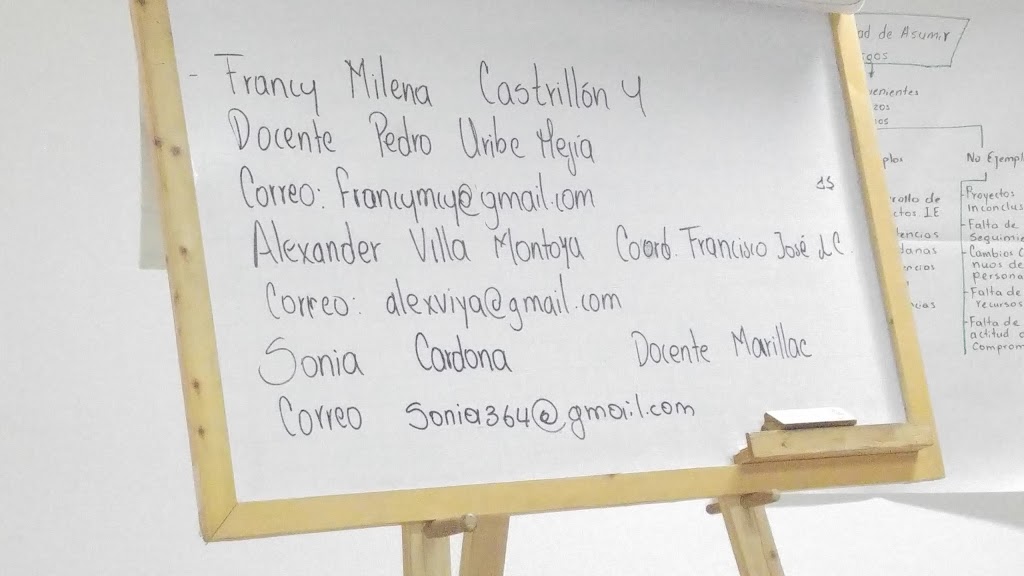 - Francy Milena Castrillón Y
Docente Pedro Uribe Mejía
Correo: francymcy@gmail.com
Alexander Villa Montoya Coord. Francisco José d C.
Correo: alexviya@gmail.com
Sonia Cardona Docente Marillac
Correo sonia364@gmail.com
ad de Asumir
No Ejempl
Proyectos
inconclus
-Falta de
Seguimie
-Cambios C
nuos de
persona
-Falta de
recursos
-Falta de
actitud
Comprom